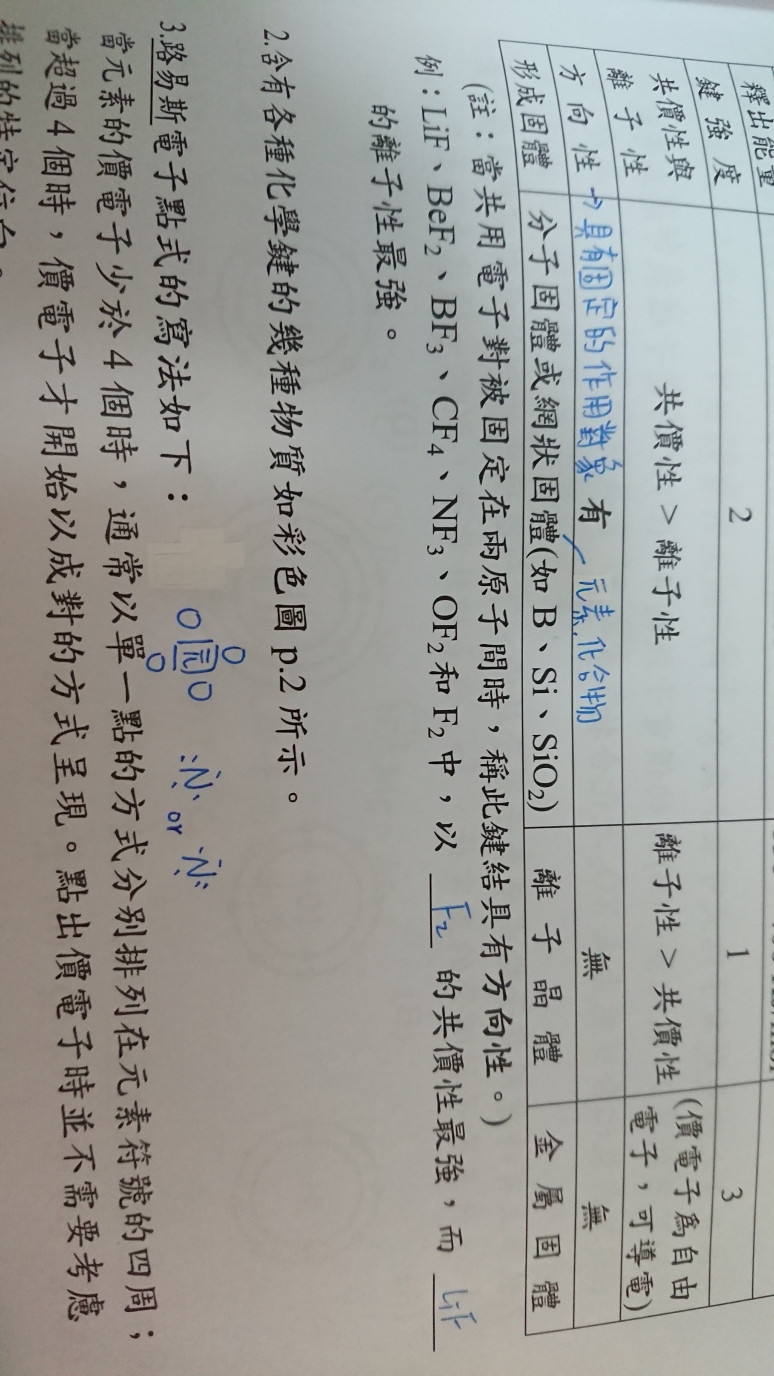 釋出能量
鍵強度 2 1 3
共價性與離子性 共價性 > 離子性 離子性 > 共價性 (價電子為自由電子，可導電)
方向性 → 具有固定的作用對象 有 無 無
元素、化合物
形成固體 分子固體或網狀固體(如 B、Si、SiO₂) 離子晶體 金屬固體
(註：當共用電子對被固定在兩原子間時，稱此鍵結具有方向性。)
例：LiF、BeF₂、BF₃、CF₄、NF₃、OF₂ 和 F₂ 中，以 F₂ 的共價性最強，而 LiF
的離子性最強。
2.含有各種化學鍵的幾種物質如彩色圖 p.2 所示。
3.路易斯電子點式的寫法如下：
元 :N: or ·N:
當元素的價電子少於 4 個時，通常以單一點的方式分別排列在元素符號的四周；
當超過 4 個時，價電子才開始以成對的方式呈現。點出價電子時並不需要考慮
排列的特定位向。